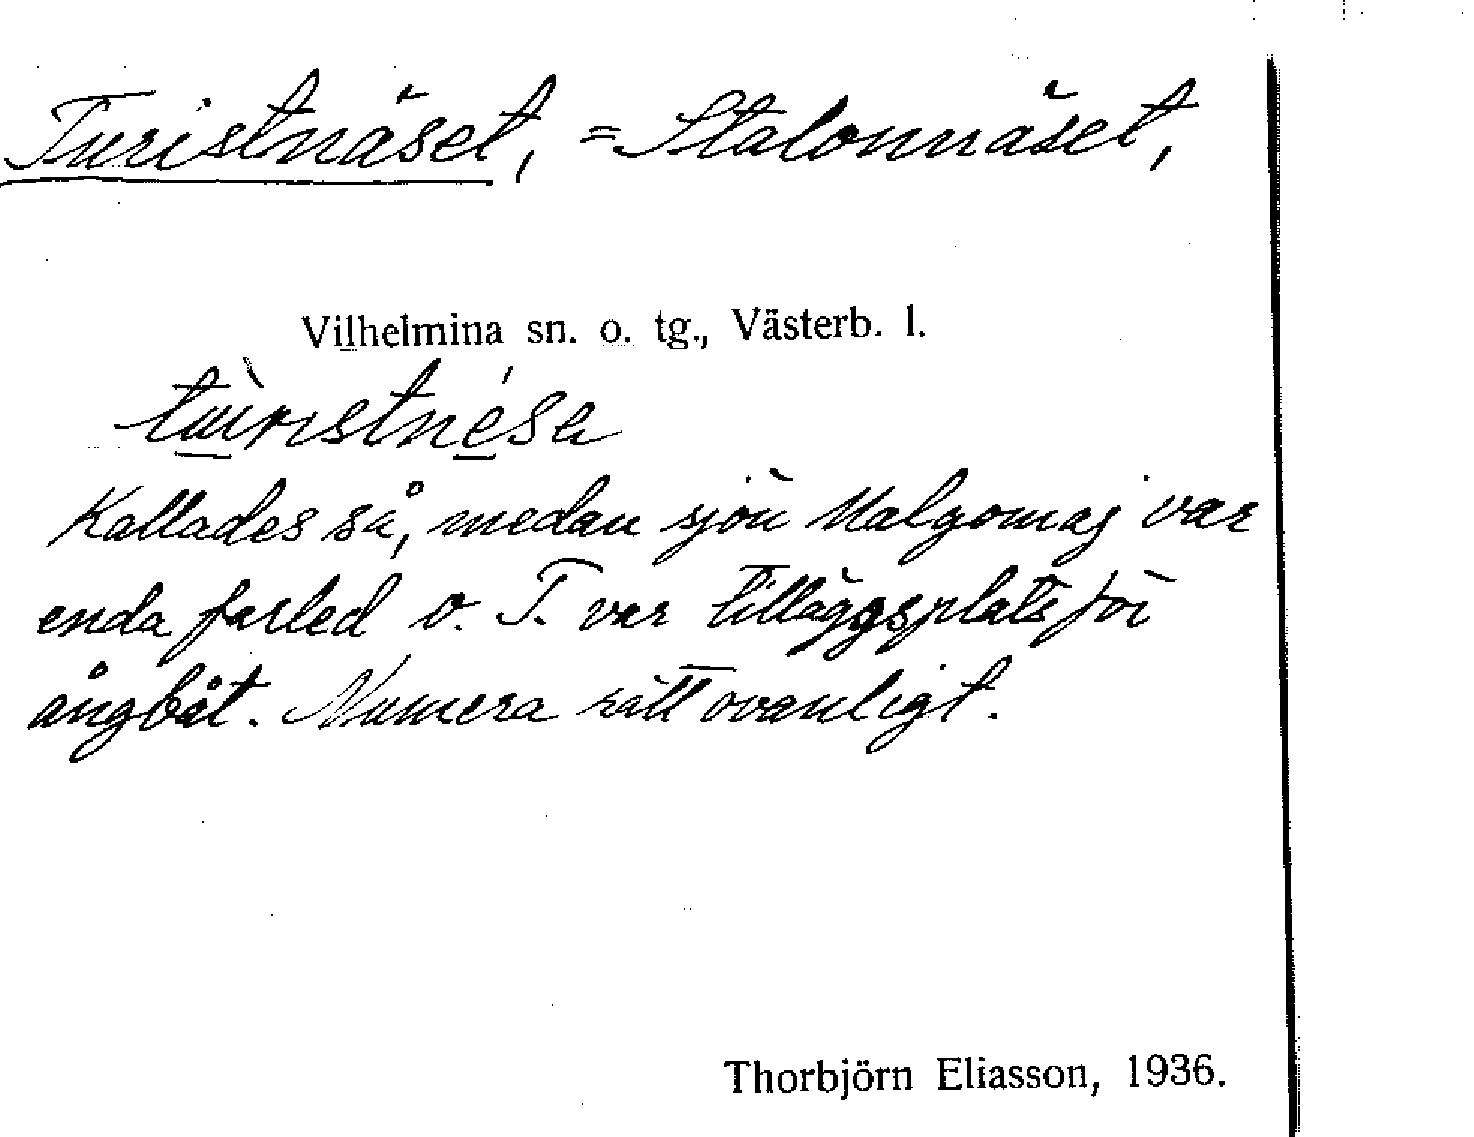 Turistnäset, = Stalonnäset,
Vilhelmina sn. o. tg., Västerb. l.
Kallades så, medan sjön Malgomaj var
enda farled o. T. var tilläggsplats för
ångbåt. Numera rätt ovanligt.
Thorbjörn Eliasson, 1936.